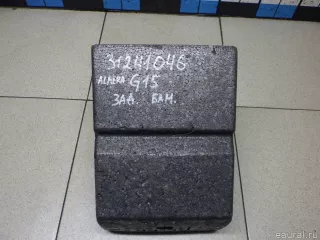 31241046
ALMERA G15
ЗАД. БАМ.
© eaural.ru